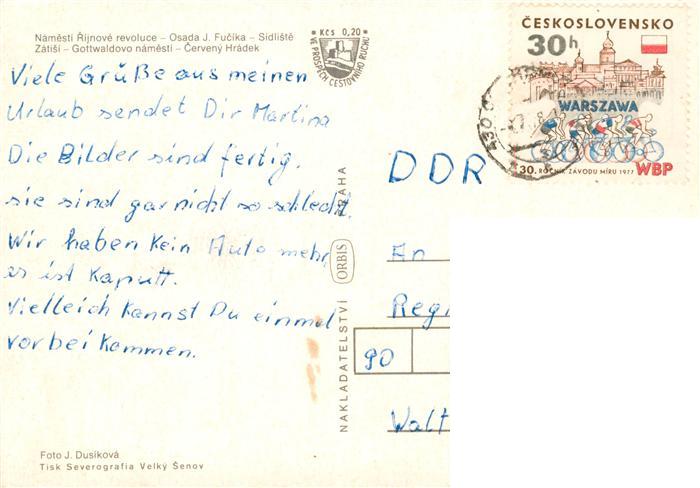 Náměstí Říjnové revoluce – Osada J. Fučíka – Sídliště
Zátiší – Gottwaldovo náměstí – Červený Hrádek
• Kčs 0,20 •
VE PROSPĚCH CESTOVNÍHO RUCHU
ČESKOSLOVENSKO
30h
WARSZAWA
30. ROČNÍK ZÁVODU MÍRU 1977 WBP
Viele Grüße aus meinen
Urlaub sendet Dir Martina
Die Bilder sind fertig,
sie sind gar nicht so schlecht.
Wir haben kein Auto mehr,
es ist kaputt.
Vielleich kannst Du einmal
vorbei kommen.
DDR
An
Regi
90
Walt
NAKLADATELSTVÍ ORBIS PRAHA
Foto J. Dusíková
Tisk Severografia Velký Šenov